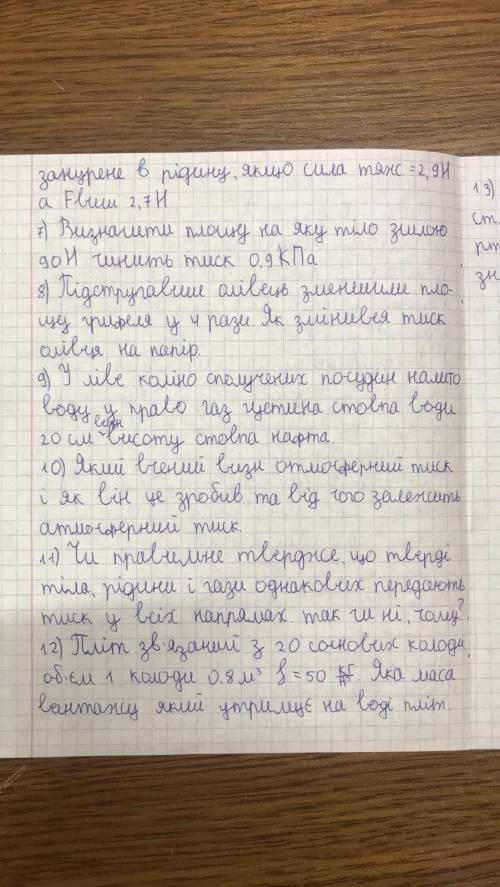 занурене в рідину, якщо сила тяж. = 2,9Н
а Fвиш 2,7Н
7) Визначити площу на яку тіло зсилою
90Н чинить тиск 0,9кПа
8) Підстругавши олівець зменшили пло-
щу грифеля у 4 рази. Як змінився тиск
олівця на папір.
9) У ліве коліно сполучених посудин налито
воду, у право газ густина стовпа води
20 см визн висоту стовпа нафта.
10) Який вчений визн атмосферний тиск
і як він це зробив та від чого залежить
атмосферний тиск.
11) Чи правильне твердже, що тверді
тіла, рідини і гази однакових передають
тиск у всіх напрямах так чи ні, чому?
12) Пліт зв'язаний з 20 соснових колоди
об'єм 1 колоди 0,8 м³ = 50 Яка маса
вантажу який утримує на воді пліт.
13)
ст.
рт
зн